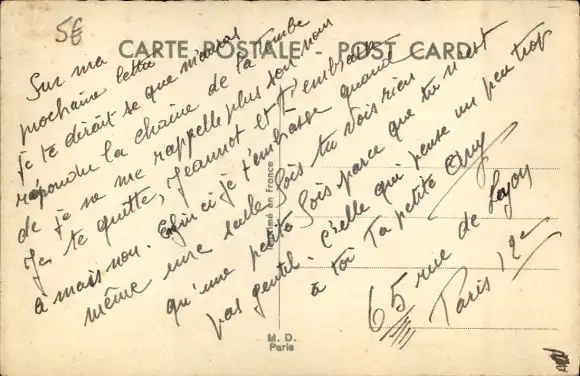 5€
CARTE POSTALE - POST CARD
Sur ma
prochaine lettre
je te dirait se que m'avais
répondu la chaîne de la tombe
de je ne me rappelle plus son nom
Je te quitte, Jeannot et t'embrasse
à mais non. Enfin ci je t'embrasse quand
même une seule fois tu vois rien
qu'une petite fois parce que tu n'est
pas gentil. C'elle qui pense un peu trop
à toi Ta petite
65 rue de
Paris 12e
Imprimé en France
M. D.
Paris